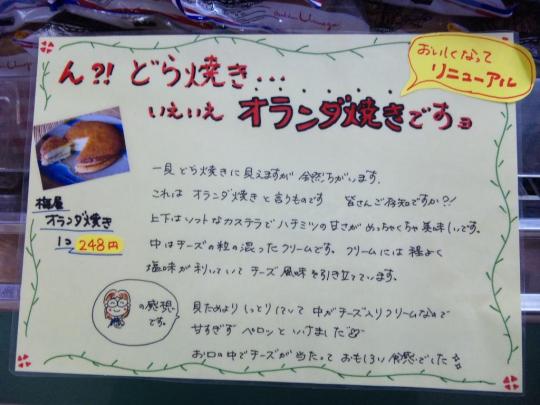 ん?! どら焼き...
いえいえ オランダ焼きですョ
おいしくなって
リニューアル
一見 どら焼きに見えますが 全然ちがいます.
これは オランダ焼きと言うものです 皆さんご存知ですか?!
上下はソフトなカステラで ハチミツの甘さが めっちゃくちゃ美味しいです.
中はチーズの粒の混ったクリームです. クリームには程よく
塩味が利いていて チーズ風味を引き立てています.
梅屋
オランダ焼き
1コ 248円
の感想
です.
見ためより しっとりしていて 中がチーズ入りクリームなので
甘すぎず ペロンといけました
お口の中でチーズが当たって おもしろい食感でした